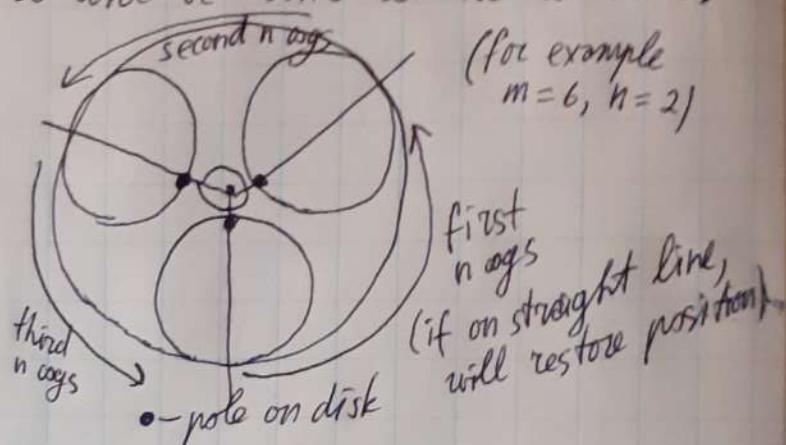 second n cogs
(for example
m = 6, n = 2)
first
n cogs
(if on straight line,
will restore position).
third
n cogs
• - pole on disk